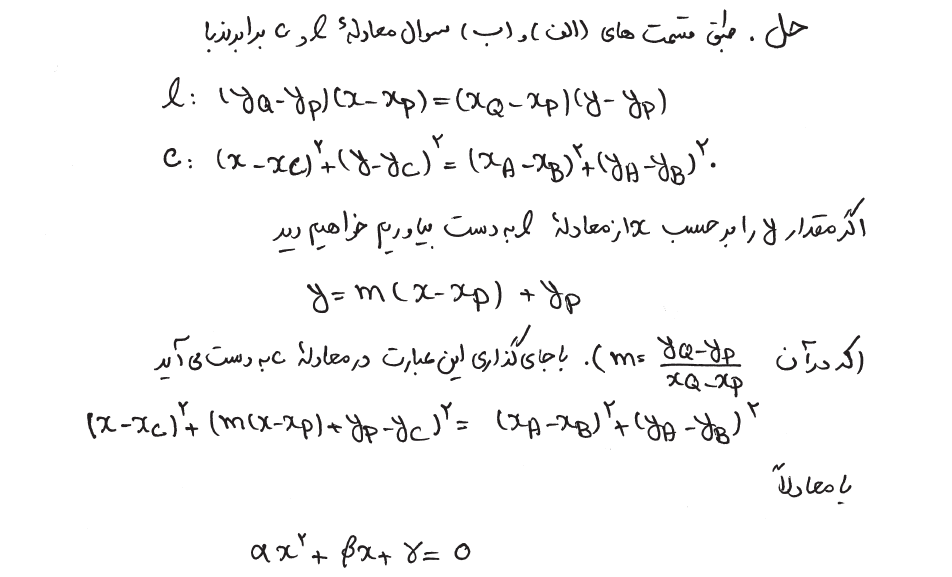 حل. طبق قسمت های (الف) و (ب) سوال معادلهٔ l و c برابرند با
l: (y_Q-y_P)(x-x_P)=(x_Q-x_P)(y-y_P)
c: (x-x_C)^۲+(y-y_C)^۲=(x_A-x_B)^۲+(y_A-y_B)^۲.
اگر مقدار y را بر حسب x از معادلهٔ l به دست بیاوریم خواهیم دید
y=m(x-x_P)+y_P
(که در آن m=\frac{y_Q-y_P}{x_Q-x_P}). با جای گذاری این عبارت در معادلهٔ c به دست می آید
(x-x_C)^۲+(m(x-x_P)+y_P-y_C)^۲=(x_A-x_B)^۲+(y_A-y_B)^۲
یا معادلاً
αx^۲+βx+γ=0